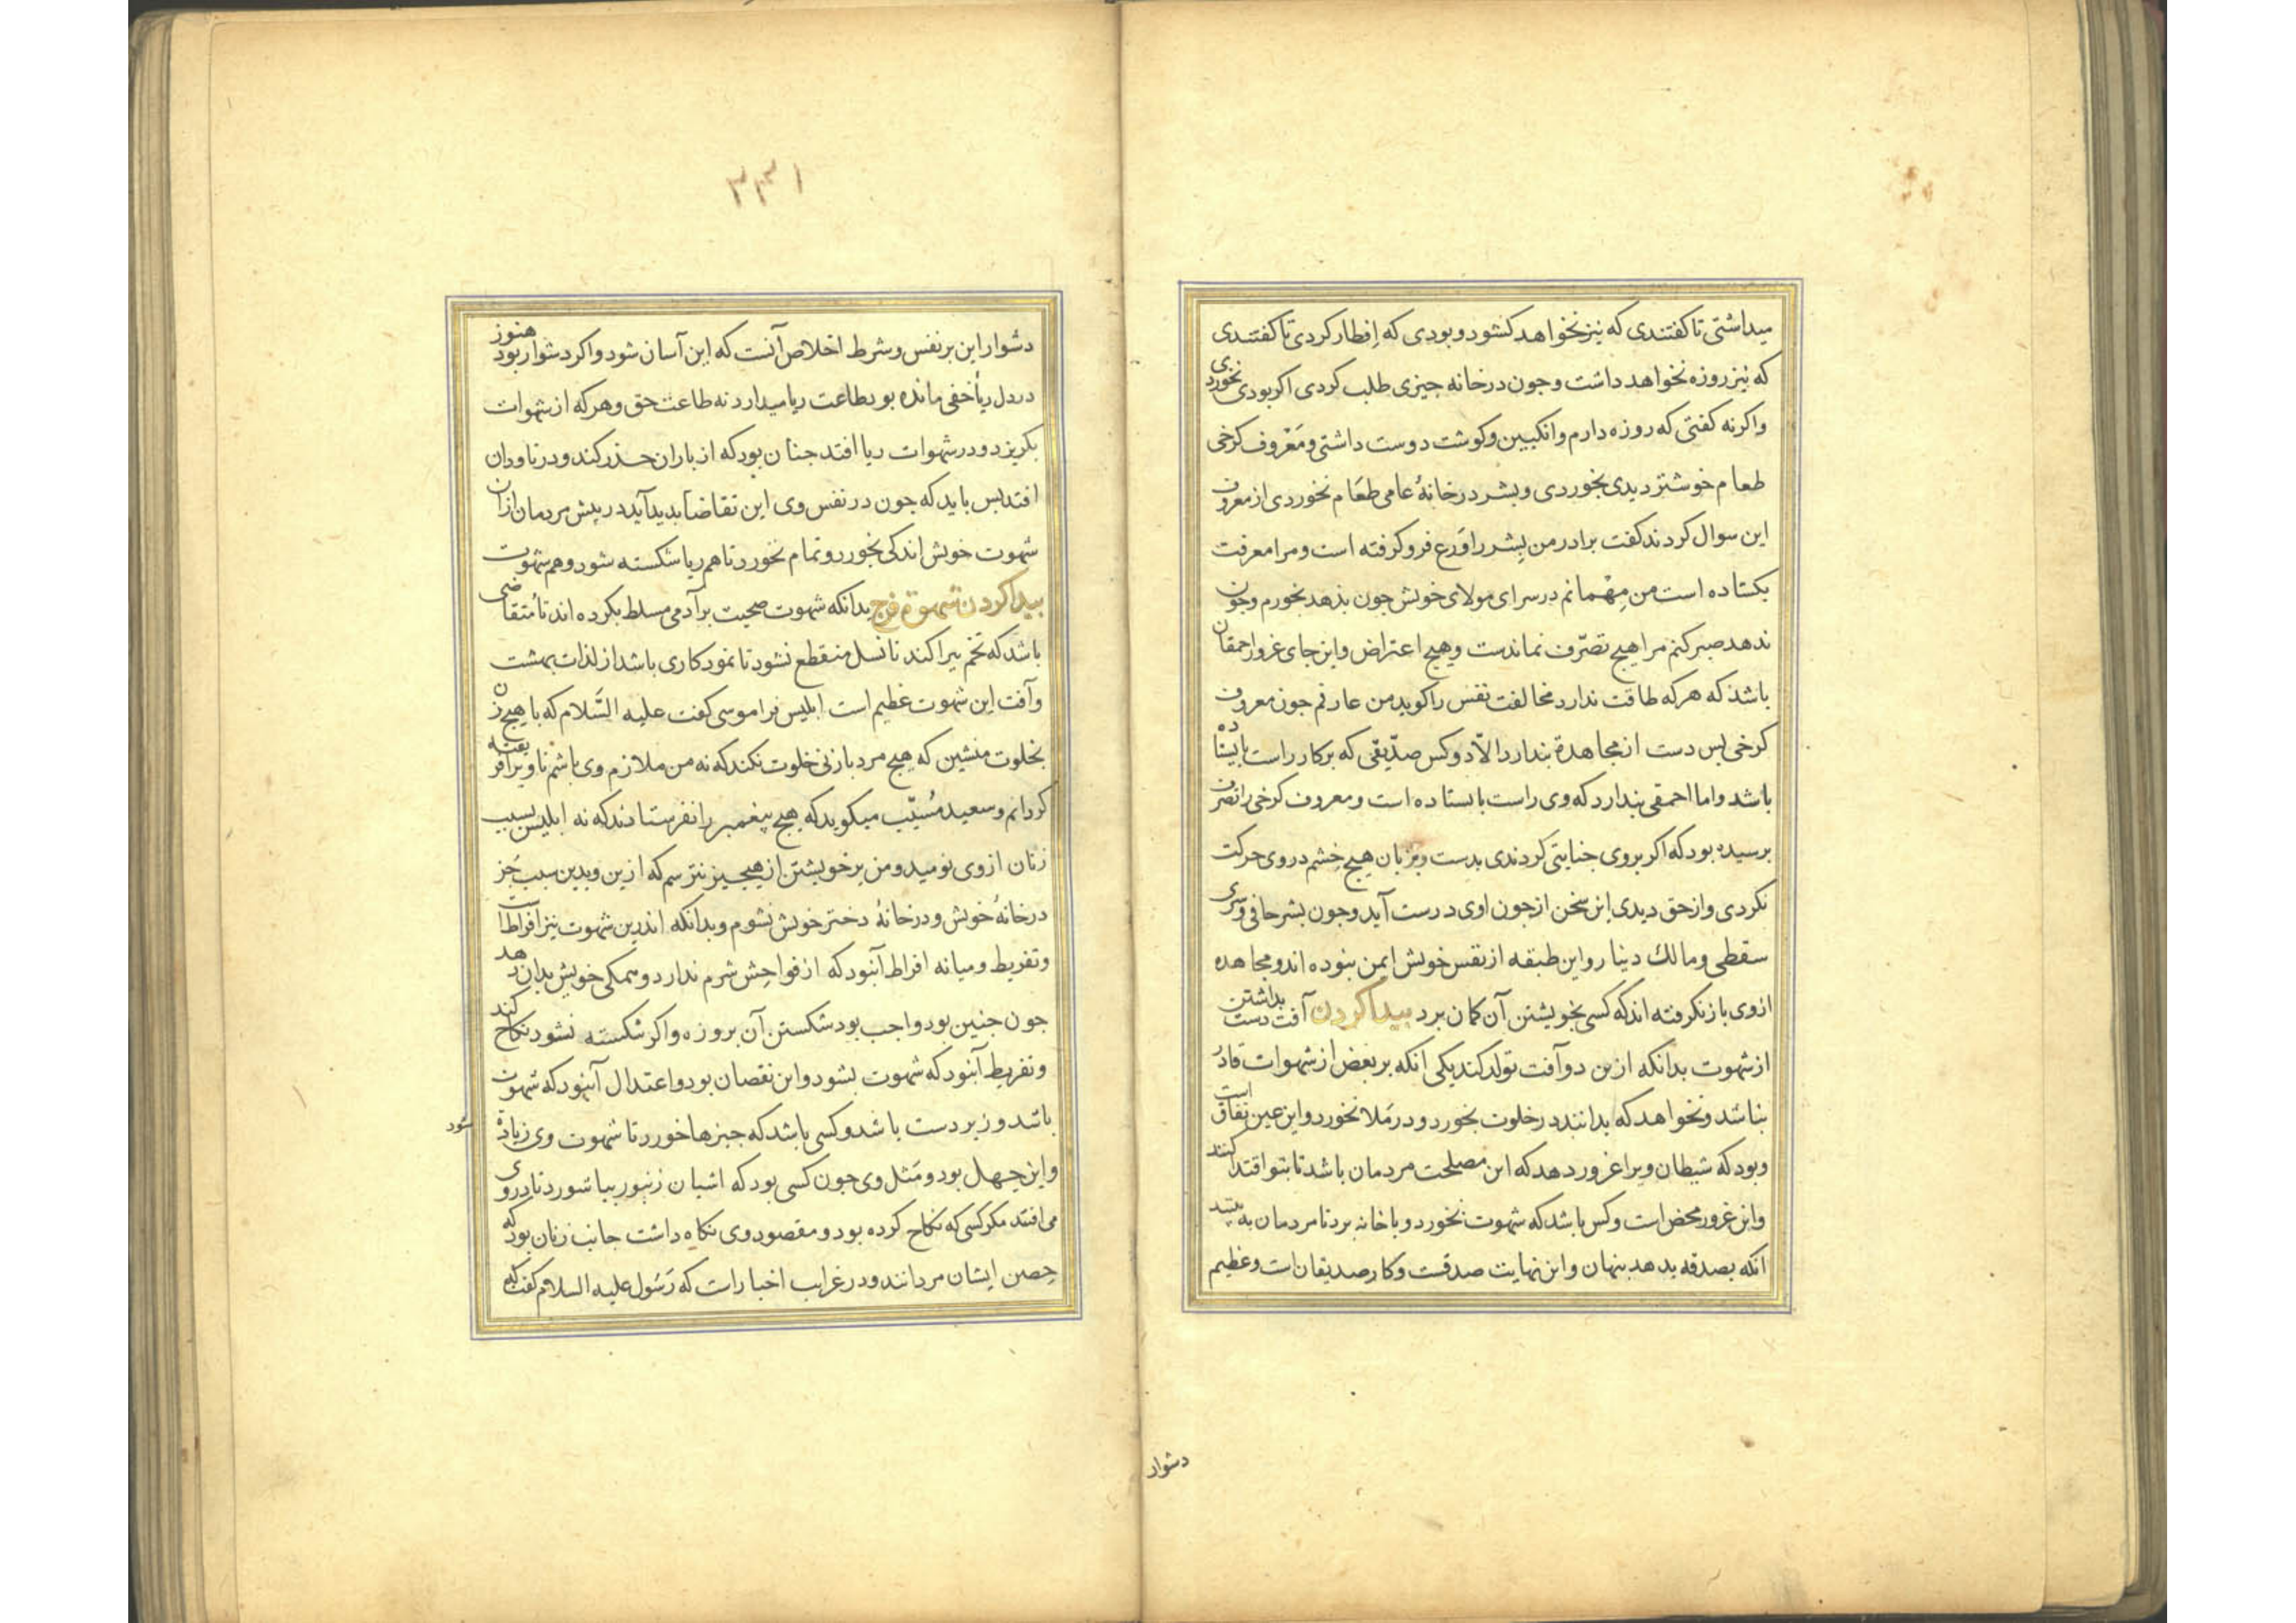 میداشتی تا کفتندی که نیز نخواهد کشود و بودی که اِفطار کردی تا کفتندی
که نیز روزه نخواهد داشت و جون در خانه جیزی طلب کردی اکر بودی بخوردی
واکرنه کفتی که روزه دارم وانکبین و کوشت دوست داشتی و مَعْروف کرخی
طعام خوشتر دیدی بخوردی و بشر در خانهٔ عامی طعَام نخوردی از معروف
این سوال کردند کفت برادر من بِشر را وَرع فرو کرفته است و مرا معرفت
بکستاده است من مِهْمانم در سرای مولای خویش جون بذهد بخورم وجون
ندهد صبر کنم مرا هیج تصرّف نماندست و هیج اعتراض و این جای غرور احمقان
باشذ که هرکه طاقت ندارد مخالفت نفس را کوید من عارفم جون معروف
کرخی بس دست از مجاهدة بندارد الاّ دو کس صدّیقی که بر کار راست بایستاده
باشد واما احمقی بندارد که وی راست بایستاده است و معروف کرخی را تصرف
برسیده بود که اکر بر وی جنایتی کردندی بدست و بزبان هیج خِشم در وی حرکت
نکردی و از حق دیدی این سخن از جون اوی درست آید و جون بشر حافی و سری
سقطی و مالك دینار و این طبقه از نفس خویش ایمن نبوده اند و مجاهده
از وی باز نکرفته اند که کسی بخویشتن آن کمان برد بیدا کردن آفت دست بداشتن
از شهوت بدانکه ازین دو آفت تولد کند یکی انکه بر بعض از شهوات قادر
نباشد و نخواهد که بدانند در خلوت بخورد و در مَلا نخورد و این عین نفاق است
و بود که شیطان ویرا غرور دهد که این مصلحت مردمان باشد تا بتو اقتدا کنند
و این غرور محض است و کس باشد که شهوت بخورد و با خانه برد تا مردمان به بینند
انکه بصدقه بدهد بنهان و این نهایت صدقست و کار صدیقان است و عظیم
دشوار
۳۳۱
دشوار این بر نفس و شرط اخلاص آنست که این آسان شود واکر دشوار بود هنوز
در دل ریأ خفی مانده بود بطاعت ریا میدارد نه طاعت حق و هرکه از شهوات
بکریزد و در شهوات ریا افتد جنان بود که از باران حذر کند و در ناودان
افتد بس باید که جون در نفس وی این تقاضا بدید آید در پیش مردمان از آن
شهوت خویش اندکی بخورد و تمام نخورد تا هم ریا شکسته شود و هم شهوت
بیدا کردن شهوة فرج بدانکه شهوت صحبت بر آدمی مسلط بکرده اند تا مُتقاضی
باشد که تخم بیراکند تا نسل منقطع نشود تا نمودکاری باشد از لذات بهشت
و آفت این شهوت عظیم است ابلیس فرا موسی کفت علیه السَّلام که با هیج زن
بخلوت منشین که هیج مرد با زنی خلوت نکند که نه من ملازم وی باشم تا ویرا فریفته
کردانم و سعید مُسیّب میکوید که هیج پیغمبر را نفرستادند که نه ابلیس بسبب
زنان از وی نومید و من بر خویشتن از هیجیز نترسم که ازین و بدین سبب جز
در خانهٔ خویش و در خانهٔ دختر خویش نشوم و بدانکه اندرین شهوت نیز افراط است
و تفریط و میانه افراط آنبود که از فواحِش شرم ندارد و همکی خویش بدان دهد
جون جنین بود واجب بود شکستن آن بروزه واکر شکسته نشود نکاح کند
و تفریط آنبود که شهوت بشود و این نقصان بود و اعتدال آنبود که شهوت
باشد و زیردست باشد و کسی باشد که جیزها خورد تا شهوت وی زیادة
شود
و این جهل بود و مَثل وی جون کسی بود که اشیان زنبور بیاشورد تا در وی
می افتد مکر کسی که نکاح کرده بود و مقصود وی نکاه داشت جانب زنان بود که
حِصن ایشان مردانند و در غرایب اخبار است که رَسُول علیه السلام کفت که